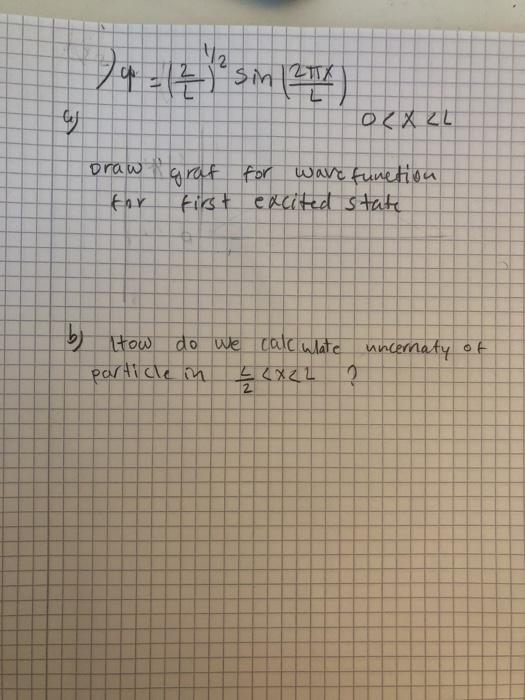 ) φ = (2/L)^1/2 sin (2πx/L)
a) 0<x<L
Draw graf for wavefunction
for first excited state
b) How do we calculate uncernaty of
particle in L/2 <x<L ?